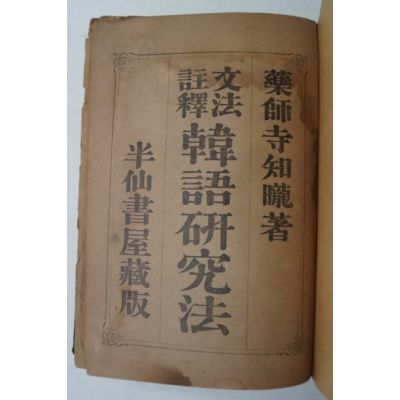 藥師寺知朧著
文法
註釋
韓語研究法
半仙書屋藏版